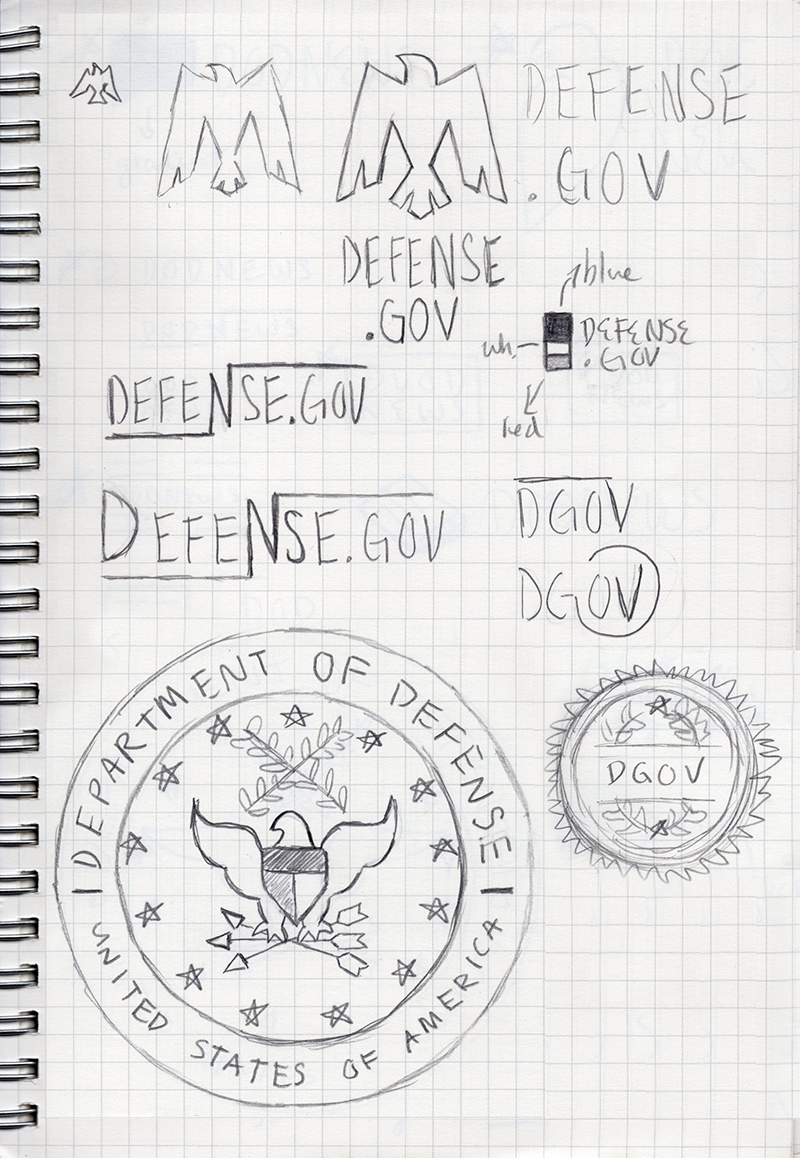 DEFENSE
.GOV
DEFENSE
.GOV
blue
wh.
DEFENSE
.GOV
red
DEFENSE.GOV
DEFENSE.GOV
DGOV
DGOV
DEPARTMENT OF DEFENSE
UNITED STATES OF AMERICA
DGOV